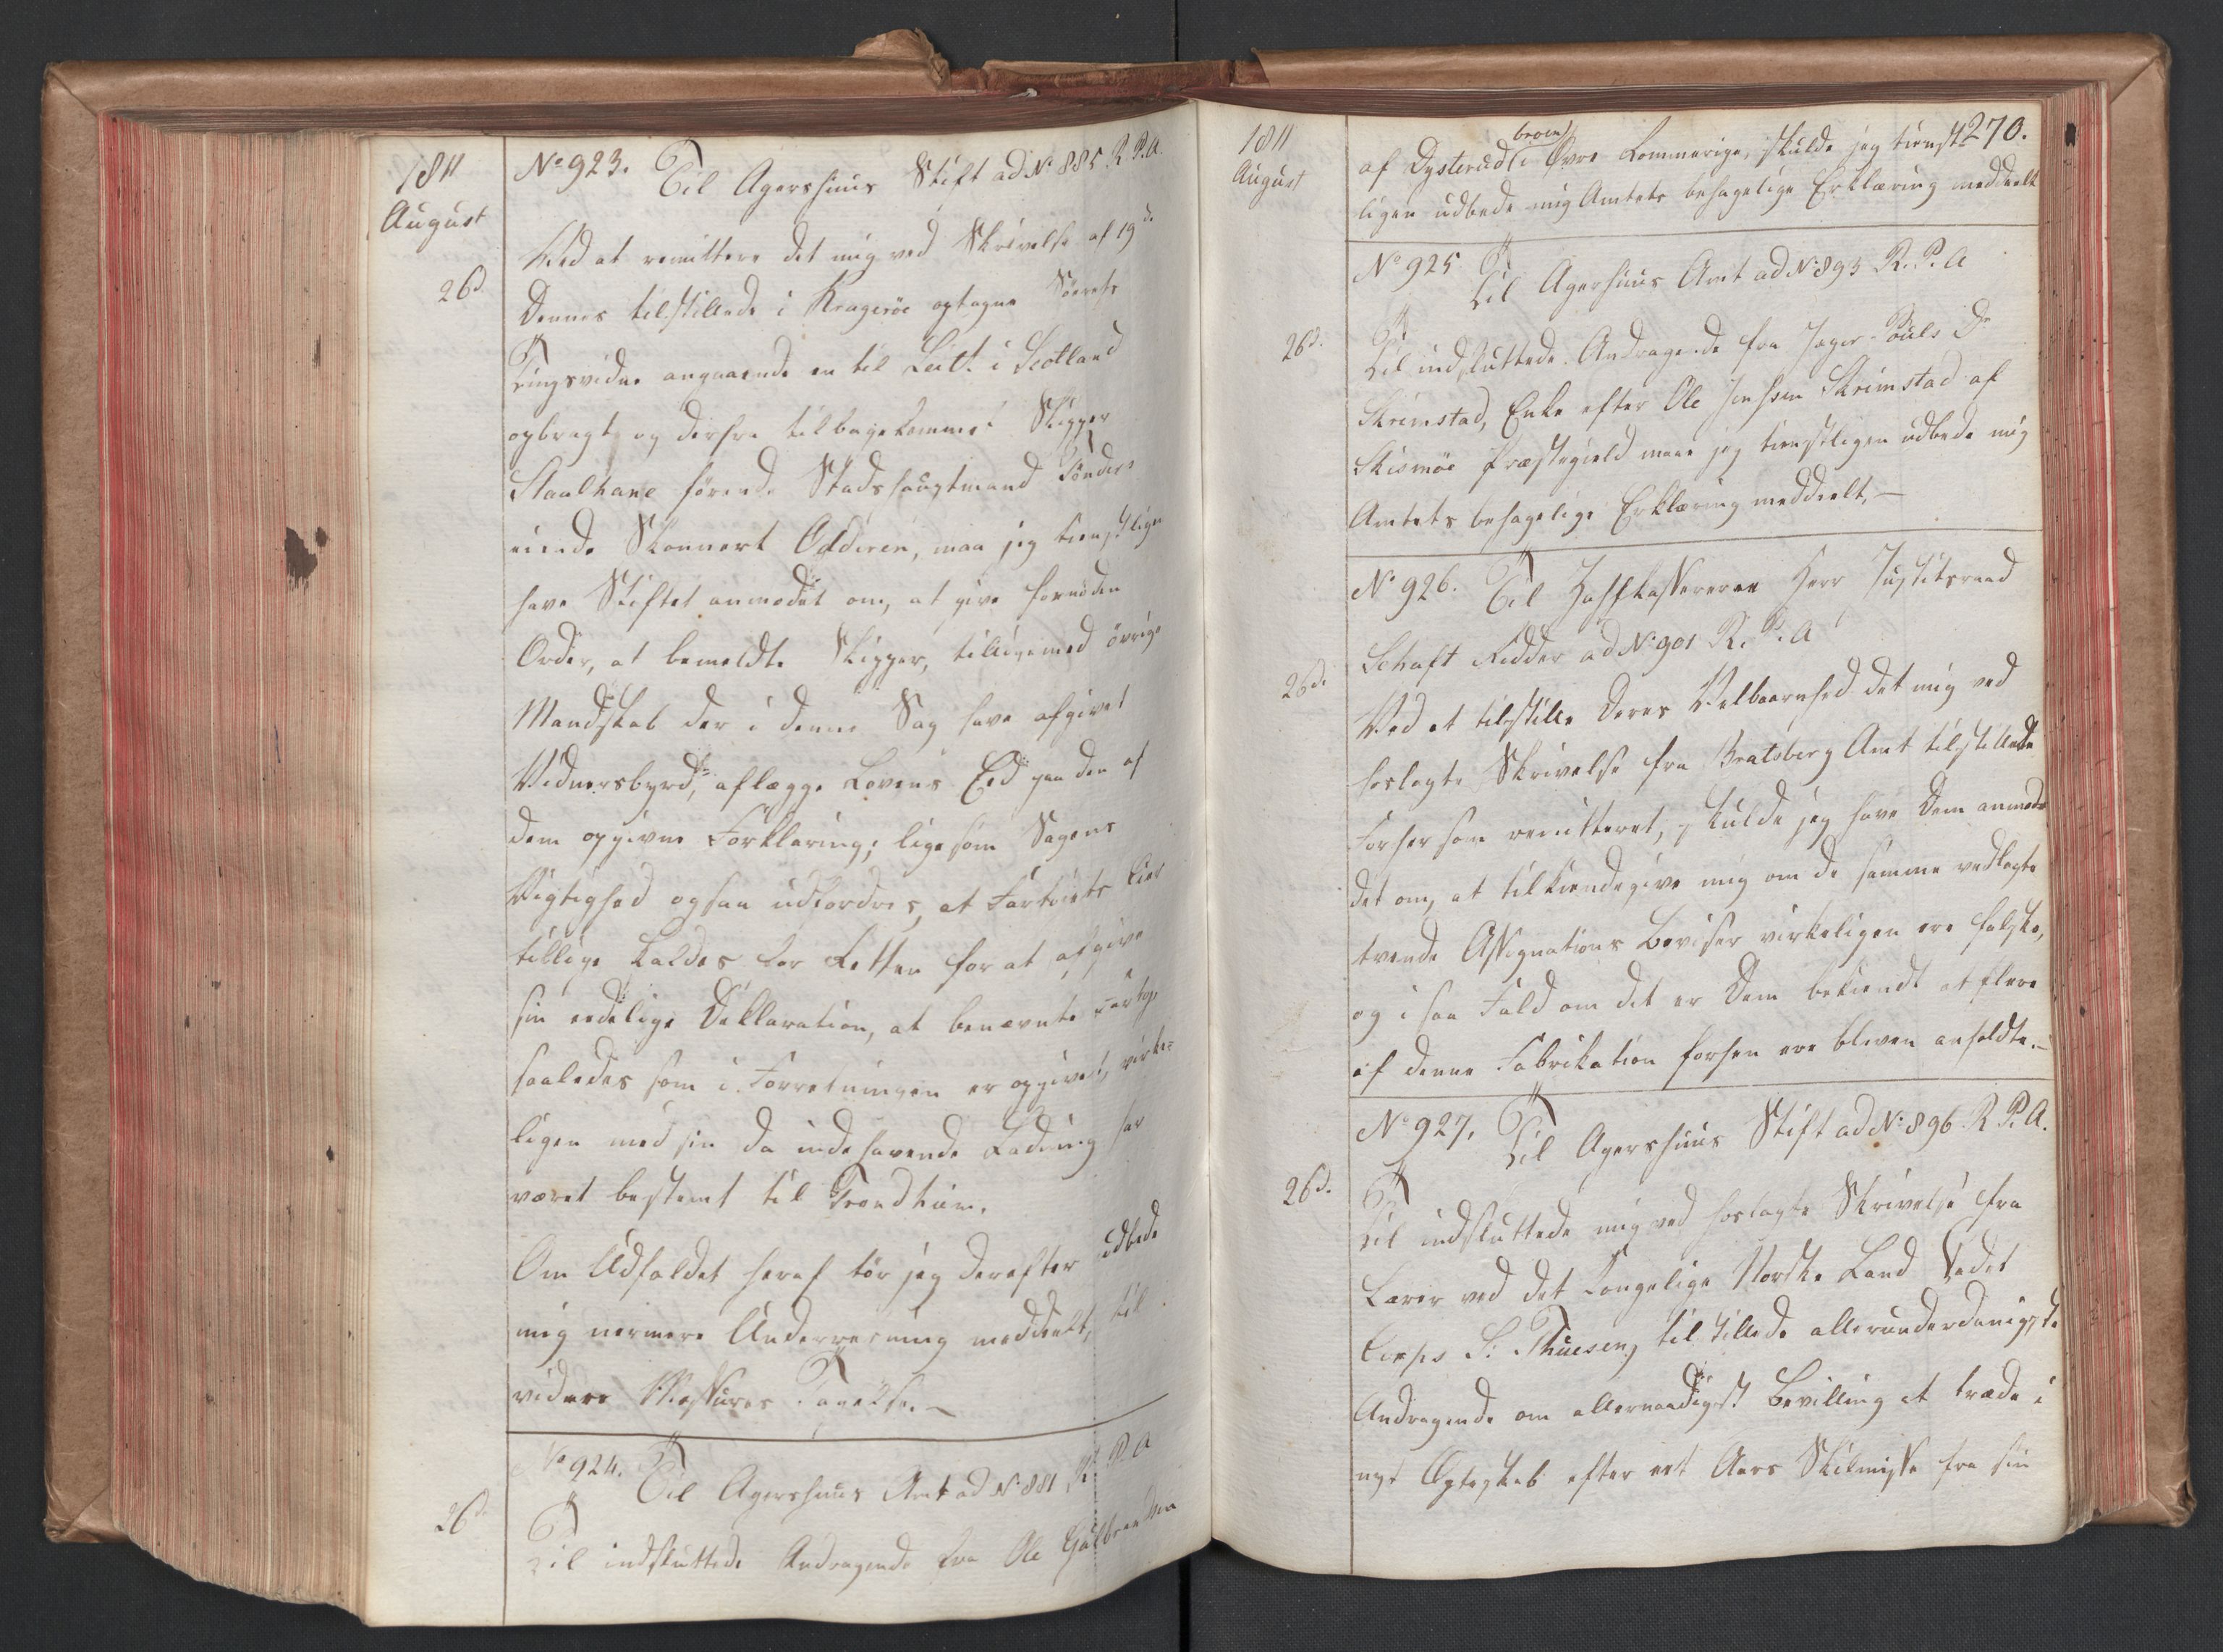 1811
August
No 923. Til Agershuus Stift ad No 885 R. P. A.
26d.
Ved at remittere det mig ved Skrivelse af 19de
Dennes tilstillede i Kragerøe optagne Søerets
Tingsvidne angaaende en til Leith i Scotland
opbragt og derfra tilbagekommet Skipper
Staalhane førende Stadshauptmand
eiende Skonnert Odderen, maa jeg tienstligen
have Stiftet anmodet om, at give fornøden
Ordre, at bemeldte Skipper, tilligemed øvrige
Mandskab der i denne Sag have afgivet
Vidnersbyrd, aflægge Lovens Eed paa den af
dem opgivne Forklaring; ligesom Sagens
Vigtighed ogsaa udfordres, at Fartøiets Eier
tillige kaldes for Retten for at afgive
sin eedelige Deklaration, at benævnte Fartøi
saaledes som i Forretningen er opgivet, virke=
ligen med sin da indehavende Ladning har
været bestemt til Trondhiem.
Om Udfaldet heraf tør jeg derefter udbede
mig nærmere Underretning meddeelt, til
videre Føielse.
No 924. Til Agershuus Amt ad No 881, R. P. A
26d.
Til indsluttede Andragende fra Ole Gulbrandsen
270.
1811
August
af Dysterud i Øvre Rommerige, skulde jeg tienst
ligen udbede mig Amtets behagelige Erklæring meddeelt
No 925 Til Agershuus Amt ad No 893 R. P. A
26d.
Til indsluttede Andragende fra Inger Pouls Dr
Skrimstad, Enke efter Ole Jensen Skrimstad af
Præstegield maae jeg tienstligen udbede mig
Amtets behagelige Erklæring meddeelt. —
No 926. Til Zahlkassereren Herr Justitsraad
Schaft Ridder ad No 901 R. P. A
26d.
Ved at tilstille Deres Velbaarnhed det mig ved
hoslagte Skrivelse fra Bratsberg Amt tilstillede
Forhør som remitteret, skulde jeg have Dem anmo
det om, at tilkiendegive mig om de samme vedlagte
tvende Assignations Beviser virkeligen ere falske,
og i saa Fald om det er Dem bekiendt at flere
af denne Fabrikation forhen ere bleven anholdte. —
No 927. Til Agershuus Stift ad No 896 R. P. A.
26d.
Til indsluttede mig ved hoslagte Skrivelse fra
Lærer ved det Kongelige Norske Land Cadet
Corps S: Thuesen, tilstillede allerunderdanigste
Andragende om allernaadigst Bevilling at træde i
nyt Ægteskab efter eet Aars Skilmisse fra sin